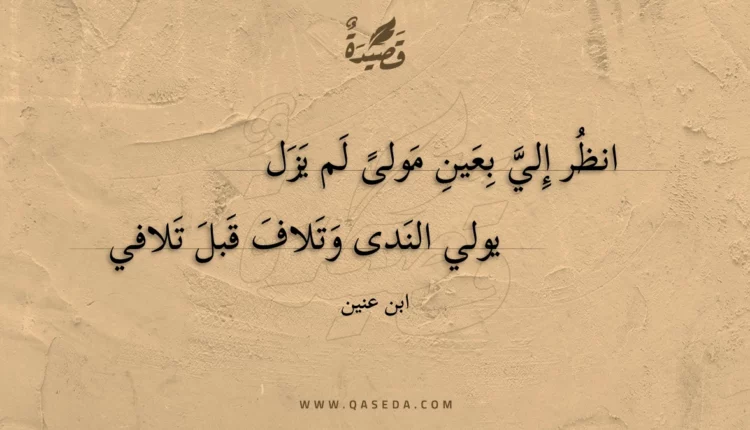 قَصِيدَةٌ
انظُر إِليَّ بِعَينِ مَولىً لَم يَزَل
يولي النَدى وَتَلافَ قَبلَ تَلافي
ابن عنين
WWW.QASEDA.COM